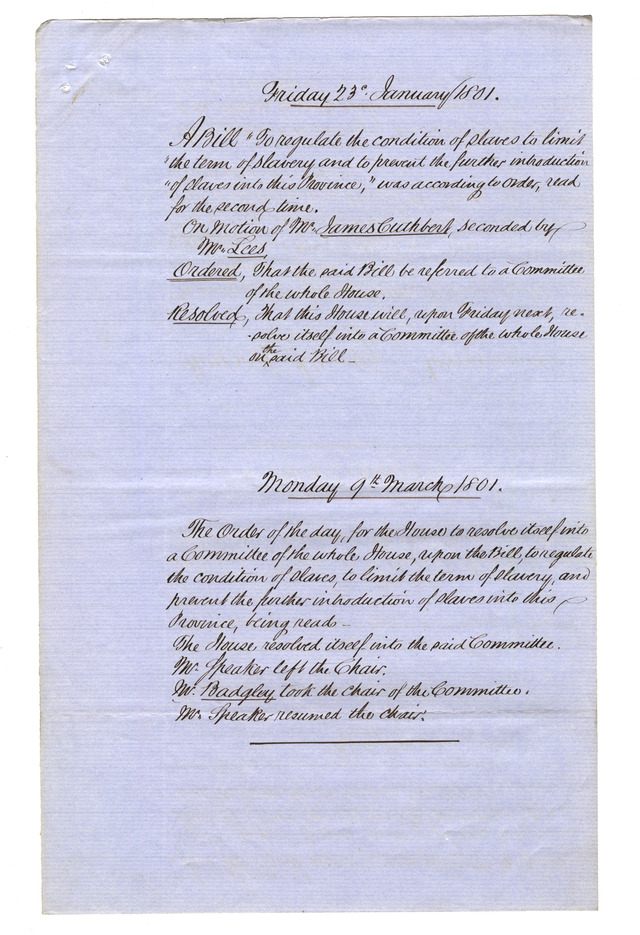 Friday 23d. January 1801.
A Bill "To regulate the condition of slaves to limit
"the term of slavery and to prevent the further introduction
"of slaves into this Province," was according to order, read
for the second time.
On Motion of Mr. James Cuthbert, seconded by
Mr. Lees,
Ordered, That the said Bill be referred to a Committee
of the whole House.
Resolved, That this House will, upon Friday next, re-
-solve itself into a Committee of the whole House
on the said Bill —
Monday 9th March 1801.
The Order of the day, for the House to resolve itself into
a Committee of the whole House, upon the Bill, to regulate
the condition of slaves, to limit the term of slavery, and
prevent the further introduction of slaves into this
Province, being read —
The House resolved itself into the said Committee.
Mr. Speaker left the Chair.
Mr. Badgley took the chair of the Committee.
Mr. Speaker resumed the chair.